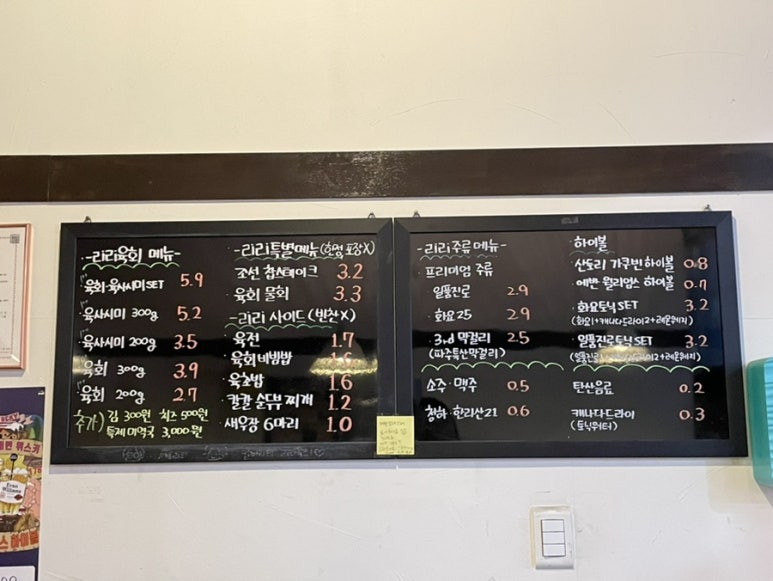 -리리육회 메뉴-
육회·육사시미SET 5.9
육사시미 300g 5.2
육사시미 200g 3.5
육회 300g 3.9
육회 200g 2.7
추가) 김 300원 치즈 500원
특제 미역국 3,000원
-리리특별메뉴(한정 포장X)
조선 찹스테이크 3.2
육회 물회 3.3
-리리 사이드(반찬X)
육전 1.7
육회비빔밥 1.6
육초밥 1.6
칼칼 순두부 찌개 1.2
새우장 6마리 1.0
-리리 주류 메뉴-
프리미엄 주류
일품진로 2.9
화요25 2.9
3rd 막걸리 2.5
(파주특산막걸리)
소주·맥주 0.5
청하·한라산21 0.6
하이볼
산토리 가쿠빈 하이볼 0.8
에반 윌리엄스 하이볼 0.7
화요토닉SET 3.2
(화요1+캐나다드라이2+레몬웨지)
일품진로토닉SET 3.2
(일품진로1+캐나다드라이2+레몬웨지)
탄산음료 0.2
캐나다드라이 0.3
(토닉워터)